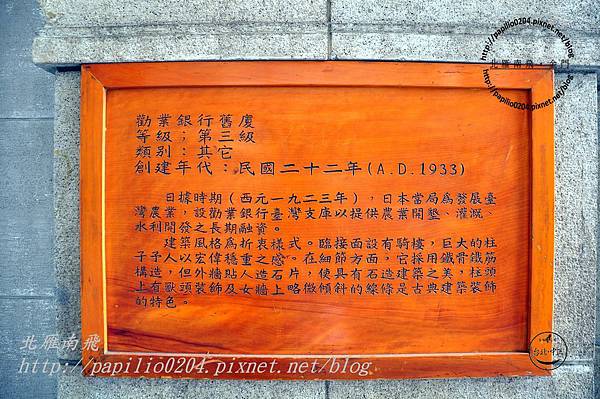 勸業銀行舊廈
等級：第三級
類別：其它
創建年代：民國二十二年(A.D.1933)
日據時期（西元一九二三年），日本當局為發展臺
灣農業，設勸業銀行臺灣支庫以提供農業開墾、灌溉、
水利開發之長期融資。
建築風格為折衷樣式。臨接面設有騎樓，巨大的柱
子予人以宏偉穩重之感。在細節方面，它採用鐵骨鐵筋
構造，但外牆貼人造石片，使具有石造建築之美，柱頭
上有獸頭裝飾及女牆上略微傾斜的線條是古典建築裝飾
的特色。
北雁南飛
http://papilio0204.pixnet.net/blog
http://papilio0204.pixnet.net/blog
北雁南飛．金門